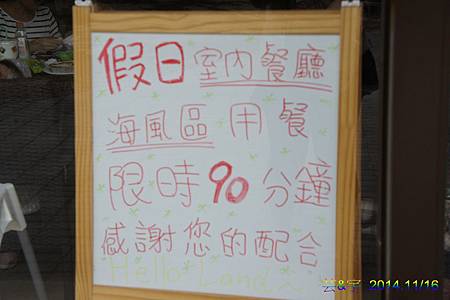 假日室內餐廳
海風區用餐
限時90分鐘
感謝您的配合
Hello Land
2014 11/16